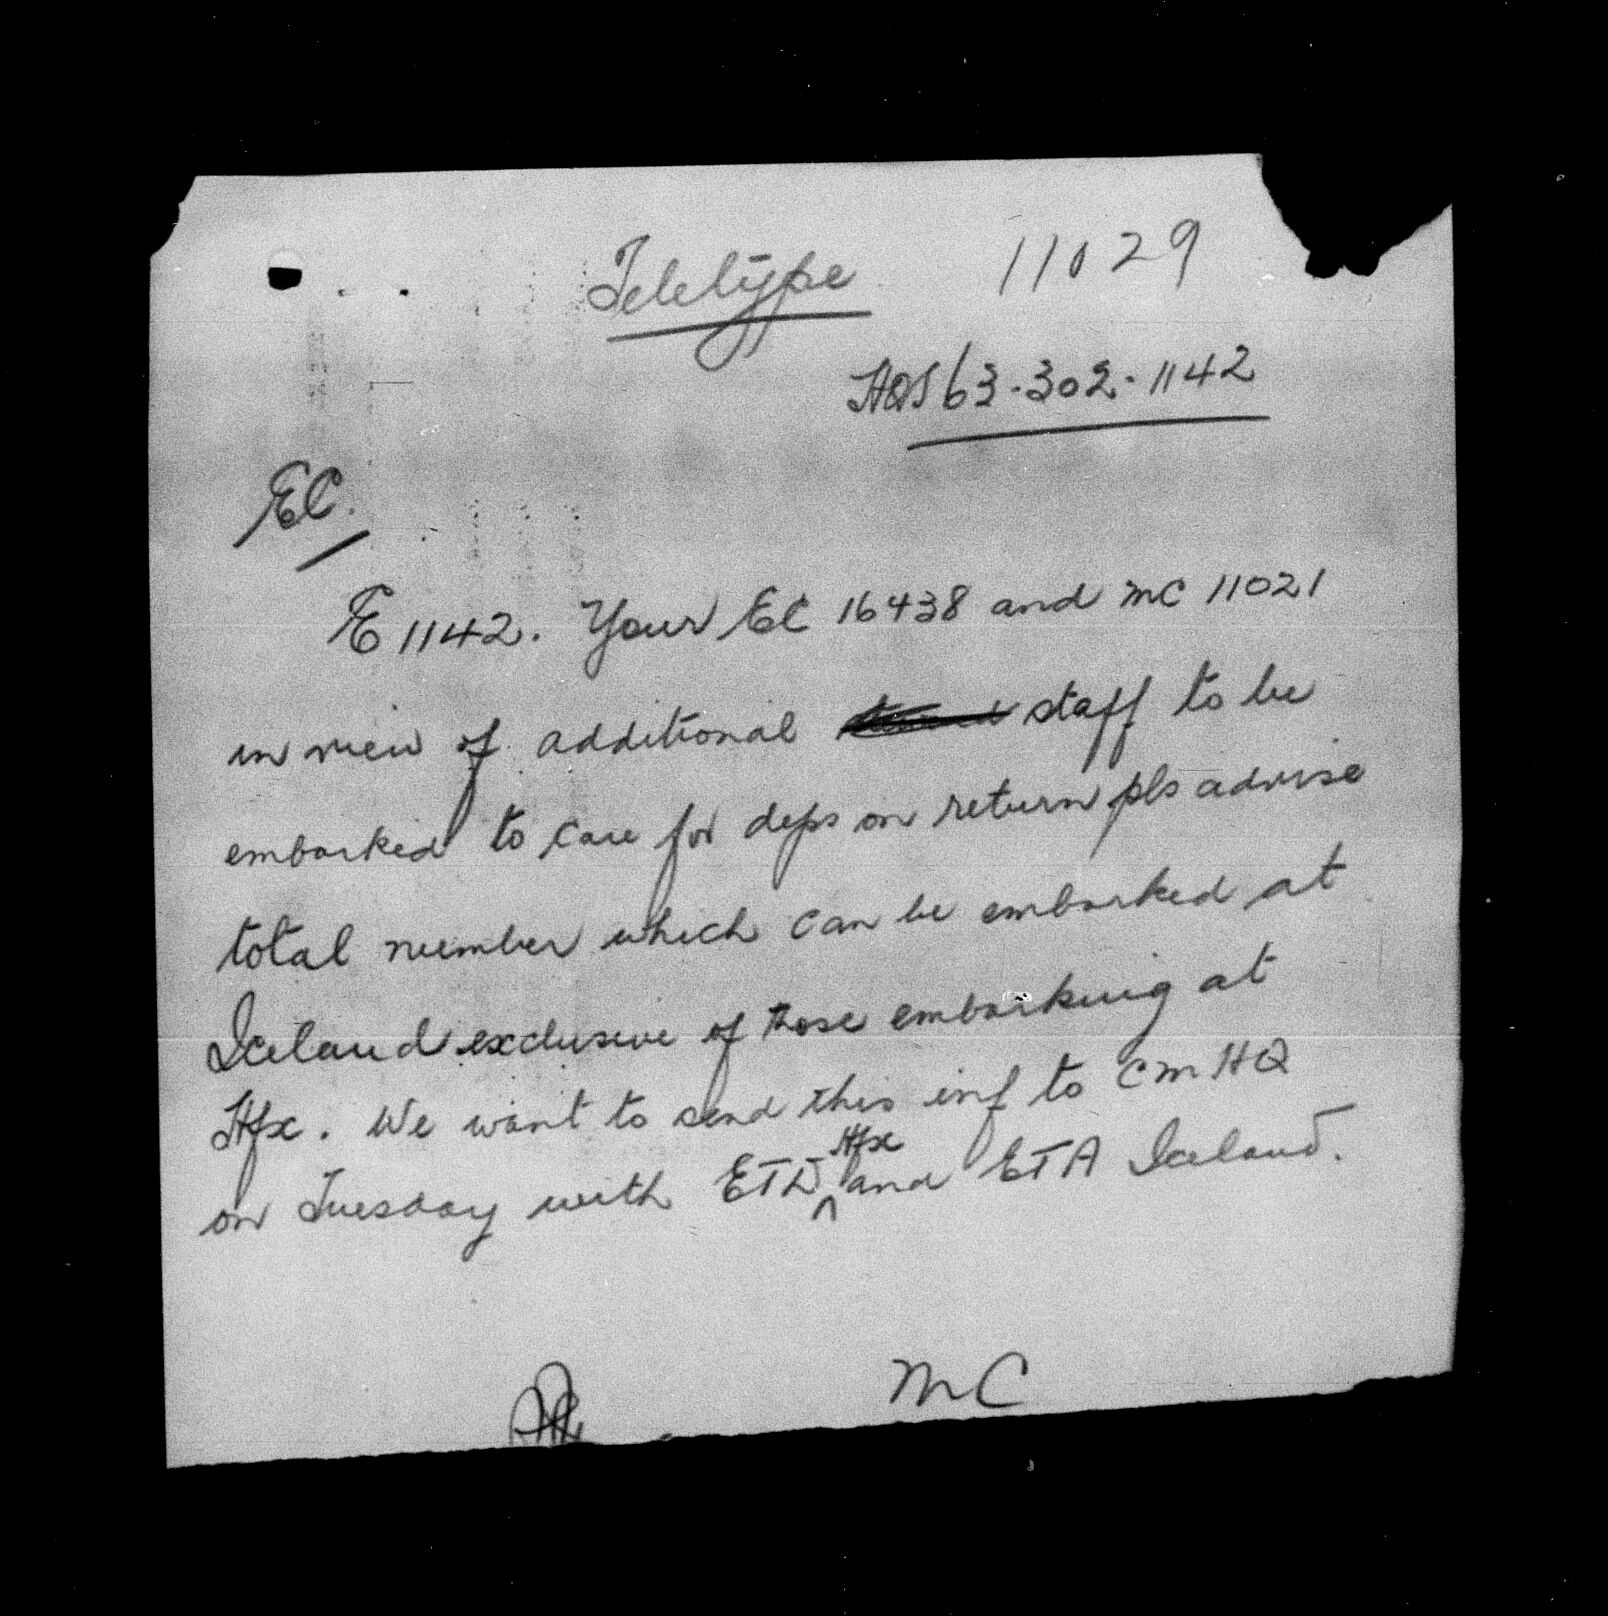 Teletype 11029
HQS 63-302-1142
EC.
E 1142. Your EC 16438 and MC 11021
in view of additional staff to be
embarked to care for deps on return pls advise
total number which can be embarked at
Iceland exclusive of those embarking at
Hfx. We want to send this inf to CMHQ
on Tuesday with ETD Hfx and ETA Iceland.
MC